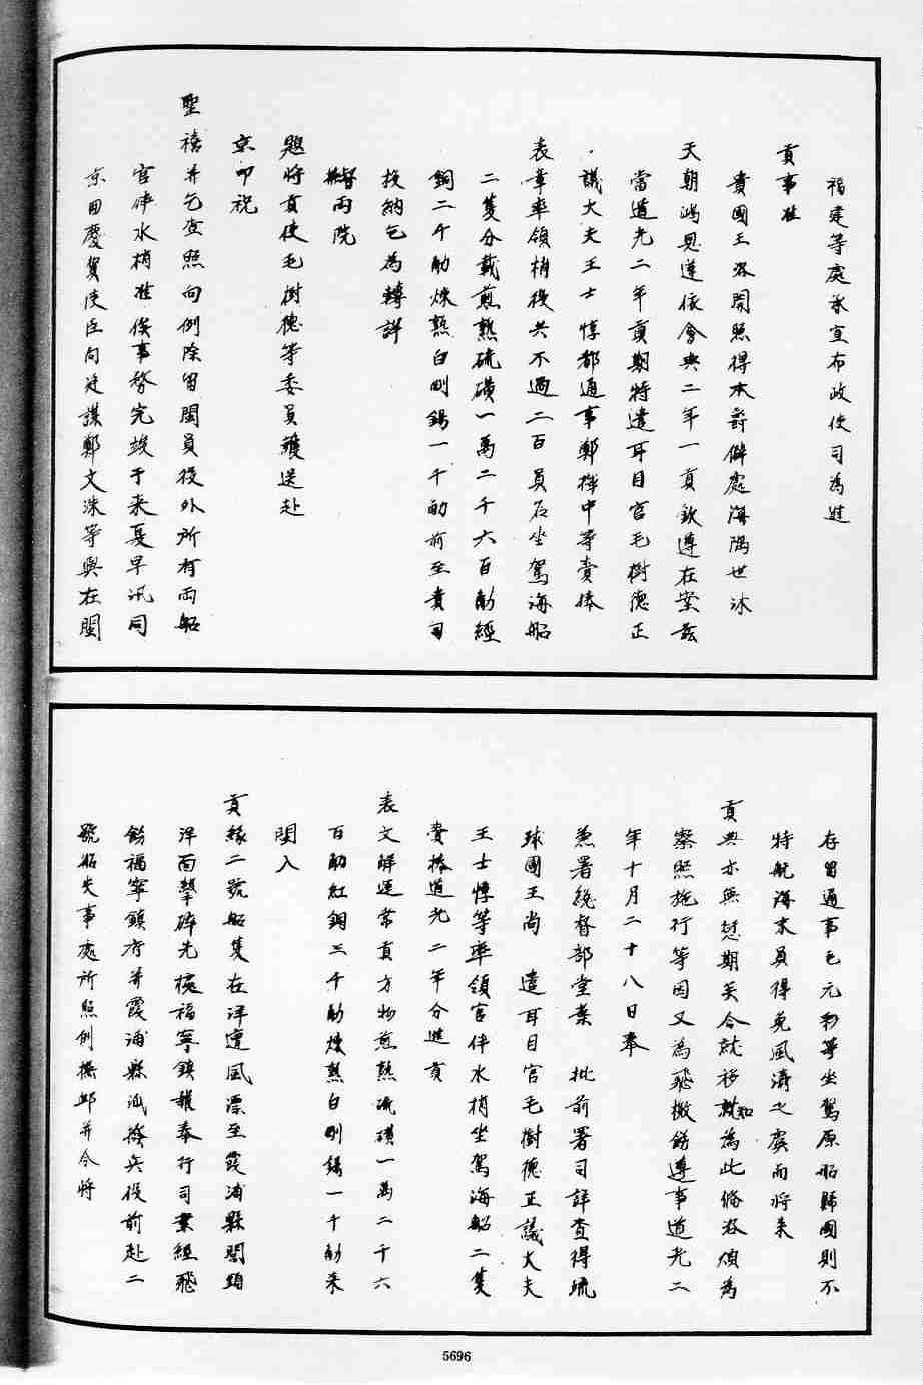 福建等處承宣布政使司為進
貢事准
貴國王咨開照得本爵僻處海隅世沐
天朝鴻恩遵依會典二年一貢欽遵在案茲
當道光二年貢期特遣耳目官毛樹德正
議大夫王士惇都通事鄭擇中等賫捧
表章率領梢役共不過二百員名坐駕海船
二隻分載煎熟硫磺一萬二千六百觔紅
銅三千觔煉熟白剛錫一千觔前至貴司
投納乞為轉詳
督撫兩院
題將貢使毛樹德等委員護送赴
京叩祝
聖禧并乞查照向例除留閩員役外所有兩船
官伴水梢准俟事務完竣于來夏早汛同
京回慶賀使臣向廷謀鄭文洙等與在閩
存留通事毛元翔等坐駕原船歸國則不
特航海末員得免風濤之虞而將來
貢典亦無愆期矣合就移知為此備咨煩為
察照施行等因又為飛檄飭遵事道光二
年十月二十八日奉
兼署總督部堂葉 批前署司詳查得琉
球國王尚 遣耳目官毛樹德正議大夫
王士惇等率領官伴水梢坐駕海船二隻
賫捧道光二年分進貢
表文解運常貢方物煎熟硫磺一萬二千六
百觔紅銅三千觔煉熟白剛錫一千觔來
閩入
貢緣二號船隻在洋遭風漂至霞浦縣閭頭
洋面擊碎先據福寧鎮報奉行司業經飛
飭福寧鎮府并霞浦縣派撥兵役前赴二
號船失事處所照例撫卹并令將
5696